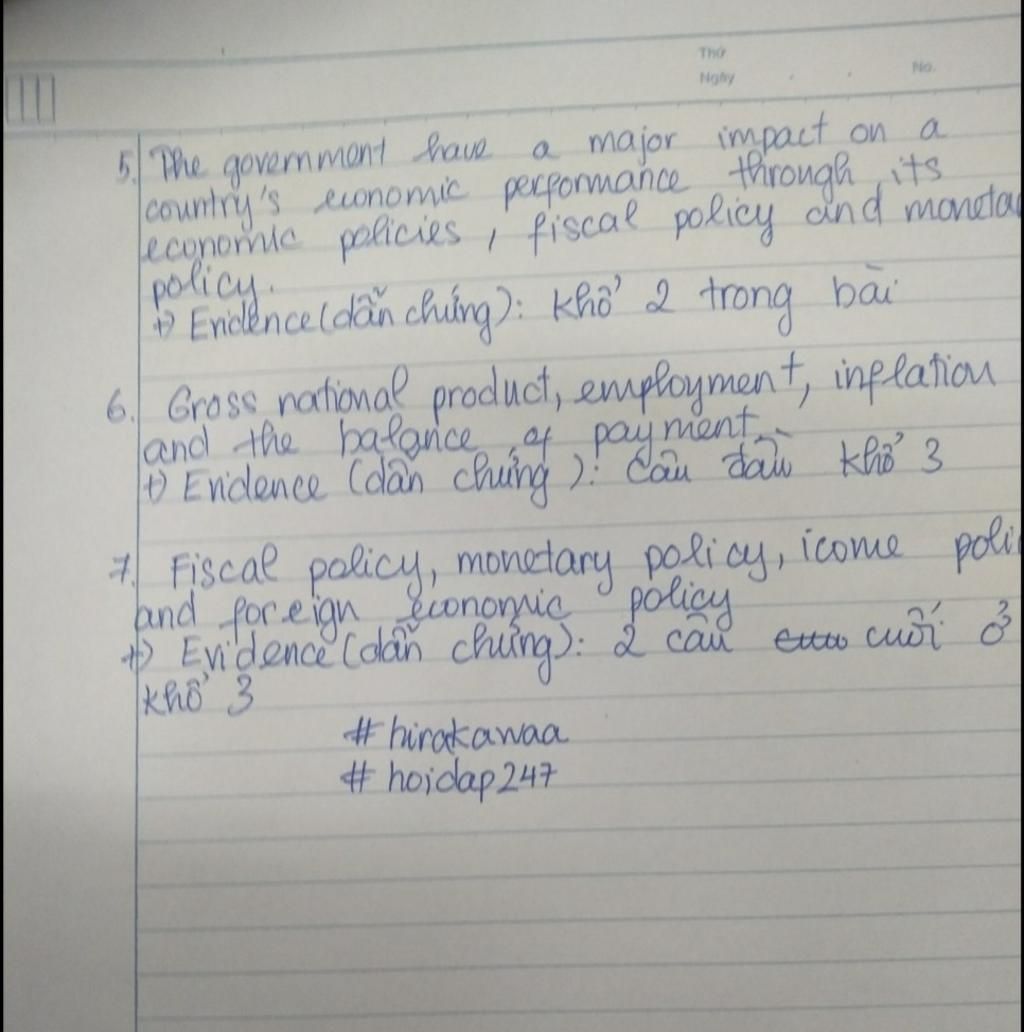 Thứ
Ngày
No.
5. The government have a major impact on a
country's economic performance through its
economic policies, fiscal policy and moneta
policy.
+) Evidence (dẫn chứng): khổ 2 trong bài
6. Gross national product, employment, inflation
and the balance of payment.
+) Evidence (dẫn chứng): Câu đầu khổ 3
7. Fiscal policy, monetary policy, icome poli
and foreign economic policy
+) Evidence (dẫn chứng): 2 câu cuối ở
khổ 3
# hirakawaa
# hoidap247